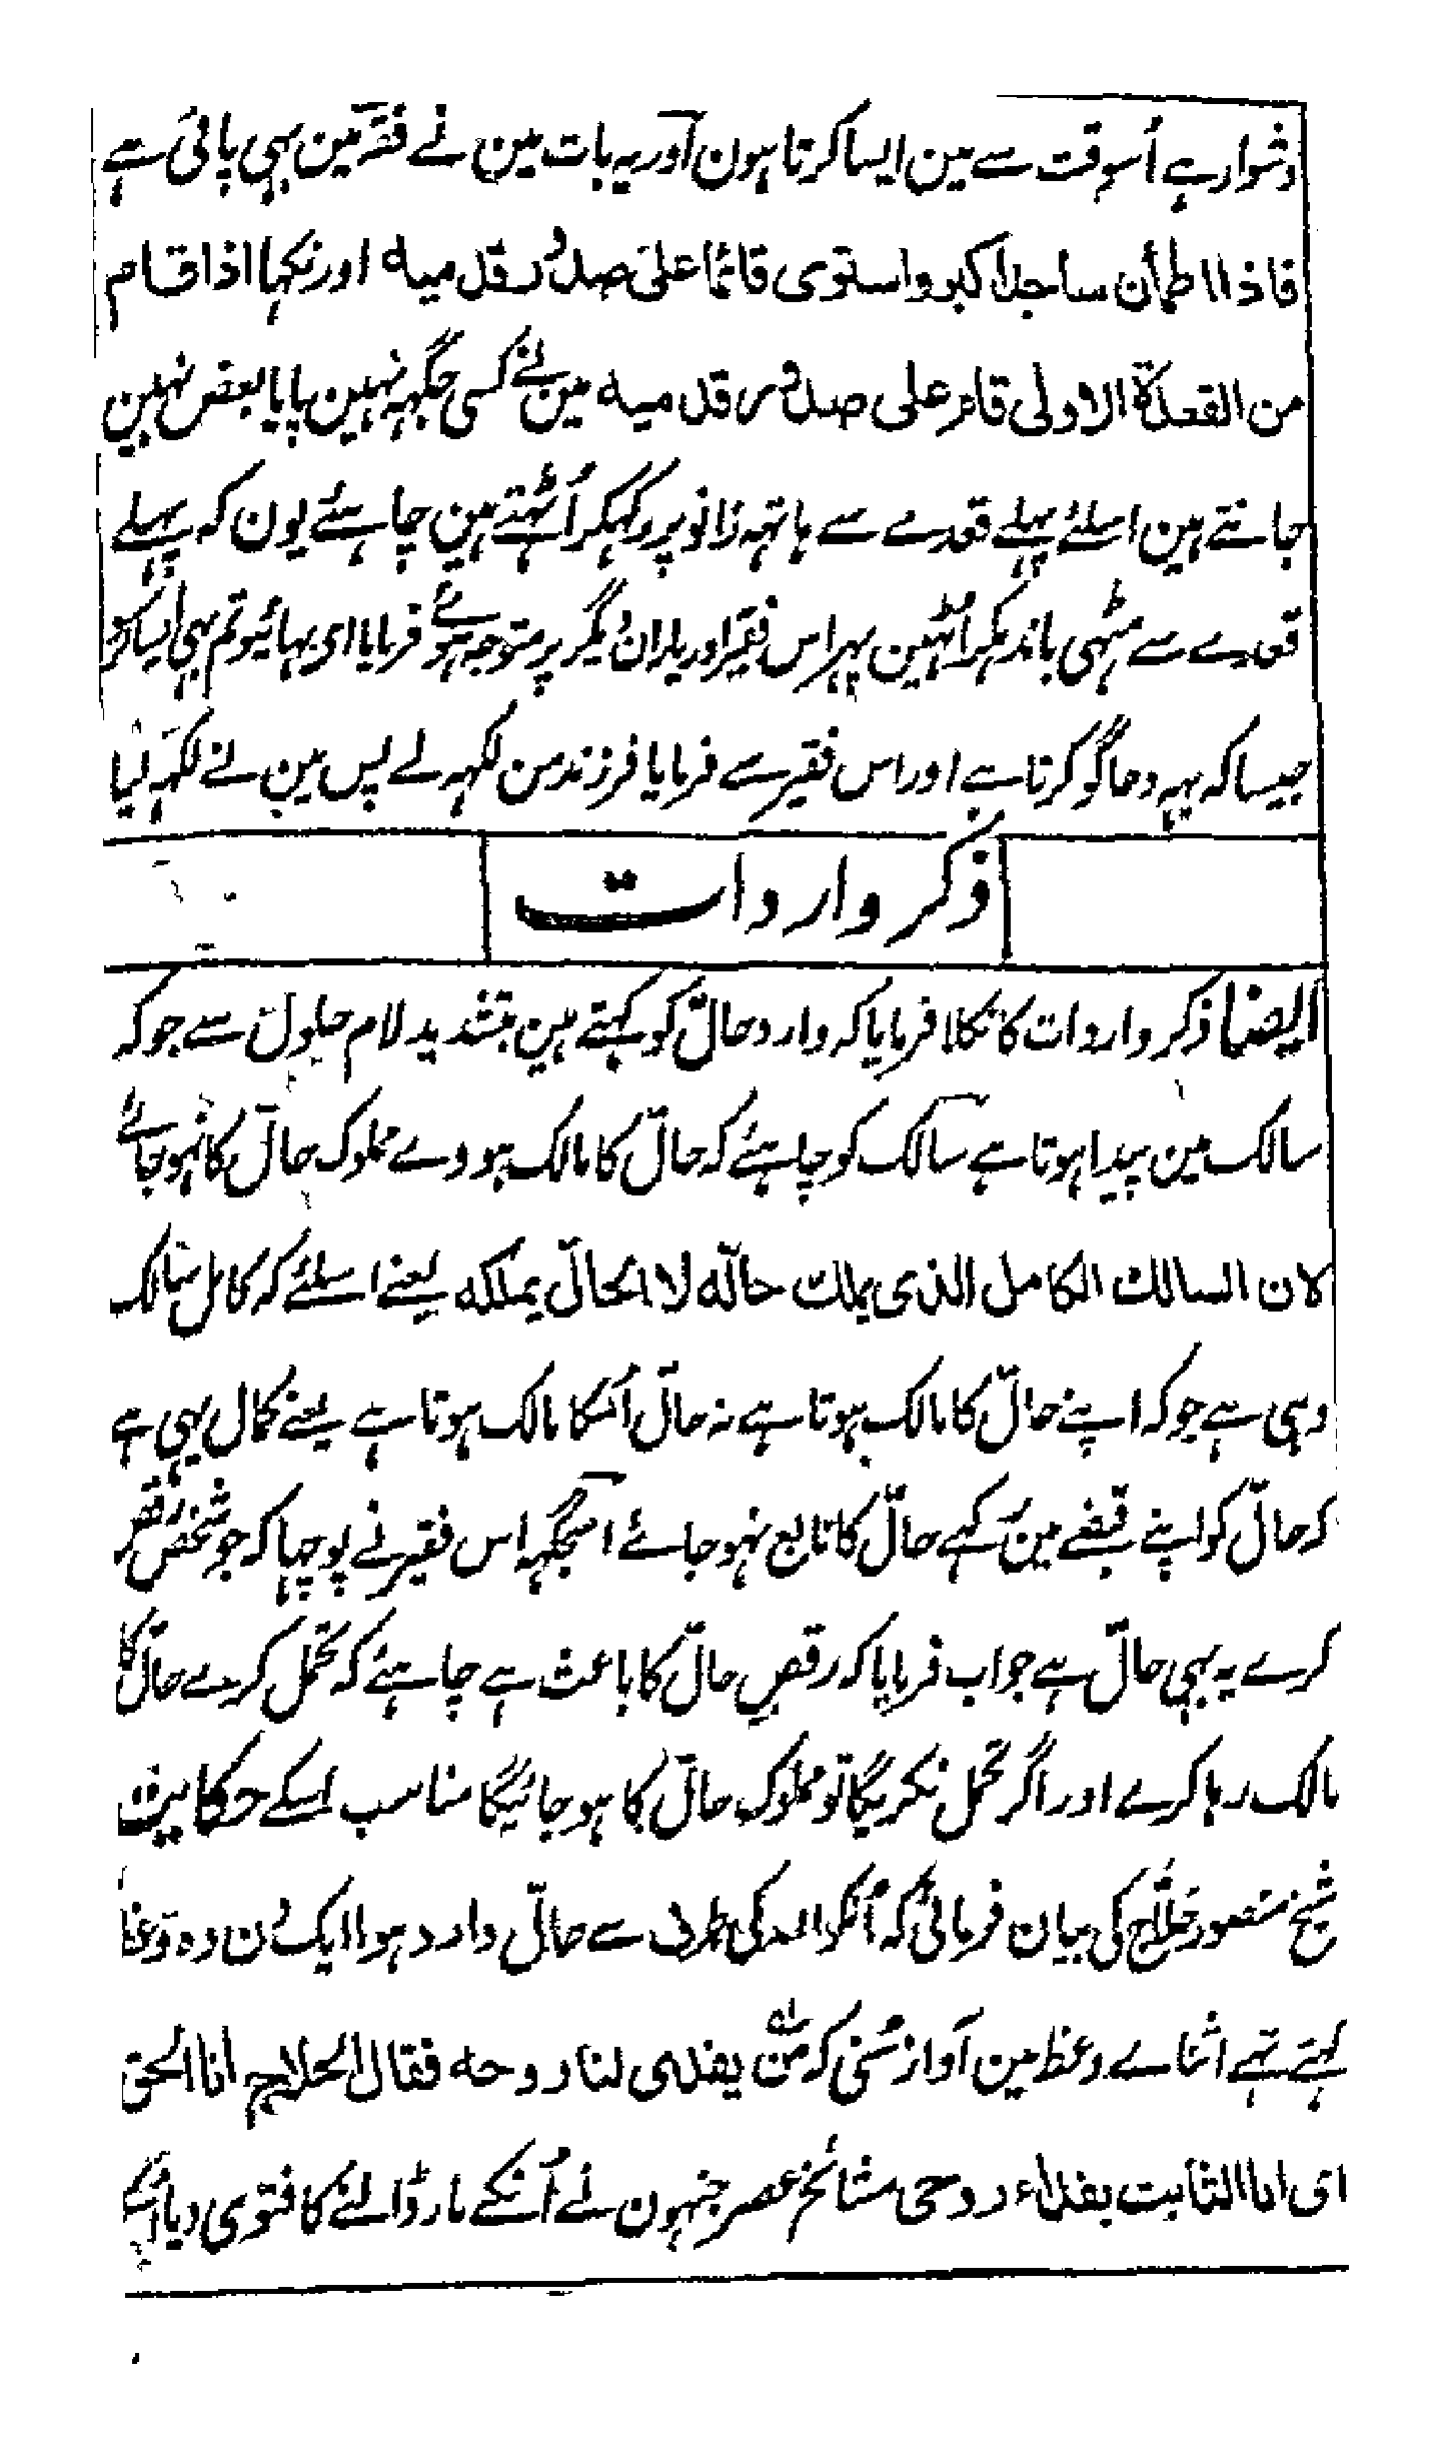 دشوار ہے اُسوقت سے مین ایسا کرتا ہون اور یہ بات مین نے فقہ مین بہی پائی ہے
فاذا اطمأن ساجدا کبر واستوی قائما علی صدور قدمیه اور نکہا اذا قام
من القعدة الاولی قام علی صدور قدمیه مین نے کسی جگہہ نہین پایا بعض نہین
جانتے ہین اسلئے پہلے قعدے سے ہاتہہ زانو پر رکہکر اُٹہتے ہین چاہئے یون کہ پہلے
قعدے سے مٹہی باندہکر اُٹہین پہر اس فقیر اور یاران دیگر پر متوجہ ہوئے فرمایا ای بہائیو تم بہی ایسا کرو
جیسا کہ یہہ دعا گو کرتا ہے اور اس فقیر سے فرمایا فرزند من لکہہ لے پس مین نے لکہہ لیا
ذکر واردات
ایضا ذکر واردات کا نکلا فرمایا کہ وارد حالّ کو کہتے ہین بتشدید لام حلول سے جو کہ
سالک مین پیدا ہوتا ہے سالک کو چاہئے کہ حالّ کا مالک ہووے مملوک حالّ کا نہوجائے
لان السالك الکامل الذی یملك حالّه لا الحالّ یملکه یعنے اسلئے کہ کامل سالک
وہی ہے جو کہ اپنے حالّ کا مالک ہوتا ہے نہ حالّ اُسکا مالک ہوتا ہے یعنے کمال یہی ہے
کہ حالّ کو اپنے قبضے مین رکہے حالّ کا تابع نہوجائے اسجگہہ اس فقیر نے پوچہا کہ جو شخص رقص
کرے یہ بہی حالّ ہے جواب فرمایا کہ رقص حالّ کا باعث ہے چاہئے کہ تحمل کرے حالّ کا
مالک رہا کرے اور اگر تحمل نکریگا تو مملوک حالّ کا ہوجائیگا مناسب اسکے حکایت
شیخ منصور حلّاج کی بیان فرمائی کہ اُنکو اللہ کی طرف سے حالّ وارد ہوا ایک دن وہ وعظ
کہتے تہے اثنائے وعظ مین آواز سُنی کہ من یفدی لنا روحه فقال الحلاج انا الحق
ای انا الثابت بفداء روحی مشائخ عصر جنہون نے اُنکے مار ڈالنے کا فتوی دیا